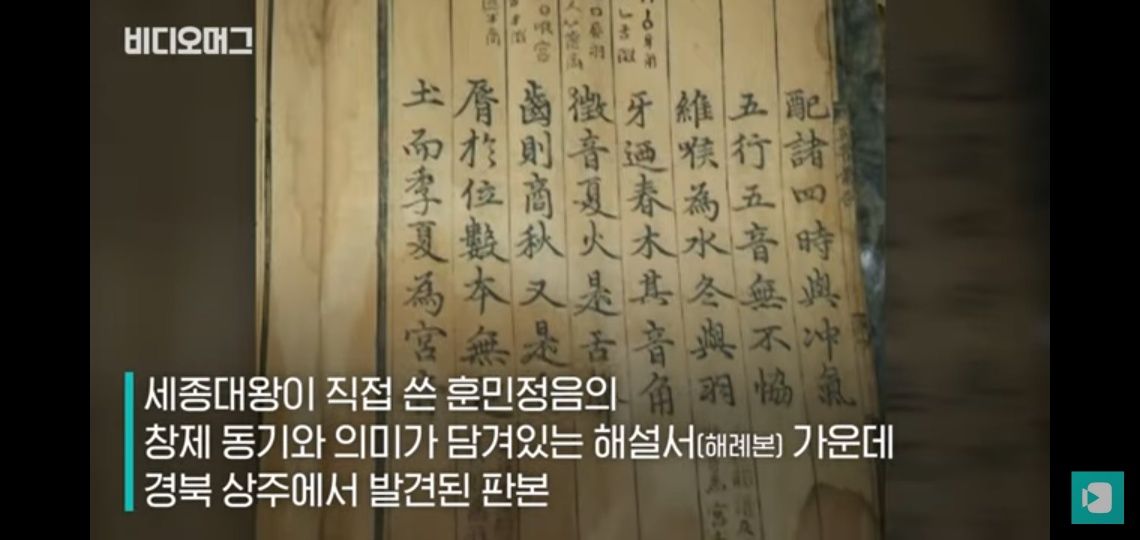 비디오머그
配諸四時與冲氣
五行五音無不恊
維喉為水冬與羽
牙迺春木其音角
徵音夏火是舌
齒則商秋又是
脣於位數本無
土而季夏為宮
세종대왕이 직접 쓴 훈민정음의
창제 동기와 의미가 담겨있는 해설서(해례본) 가운데
경북 상주에서 발견된 판본